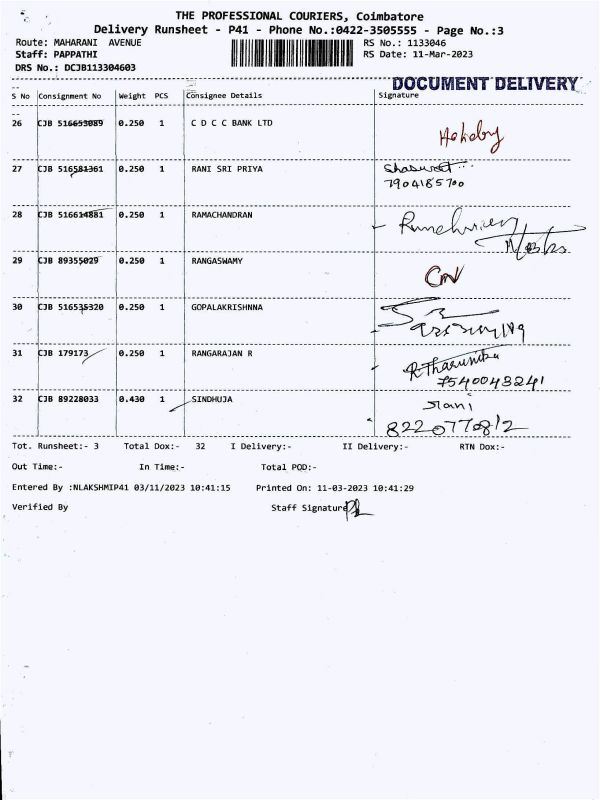 THE PROFESSIONAL COURIERS, Coimbatore
Delivery Runsheet - P41 - Phone No.:0422-3505555 - Page No.:3
Route: MAHARANI AVENUE RS No.: 1133046
Staff: PAPPATHI RS Date: 11-Mar-2023
DRS No.: DCJB113304603
DOCUMENT DELIVERY
S No Consignment No Weight PCS Consignee Details Signature
26 CJB 516653089 0.250 1 C D C C BANK LTD
27 CJB 516581361 0.250 1 RANI SRI PRIYA
7904185700
28 CJB 516614881 0.250 1 RAMACHANDRAN
29 CJB 89355029 0.250 1 RANGASWAMY
30 CJB 516535320 0.250 1 GOPALAKRISHNNA
31 CJB 179173 0.250 1 RANGARAJAN R
R.Tharunika
7540043241
32 CJB 89228033 0.430 1 SINDHUJA
8220770812
Tot. Runsheet:- 3 Total Dox:- 32 I Delivery:- II Delivery:- RTN Dox:-
Out Time:- In Time:- Total POD:-
Entered By :NLAKSHMIP41 03/11/2023 10:41:15 Printed On: 11-03-2023 10:41:29
Verified By Staff Signature